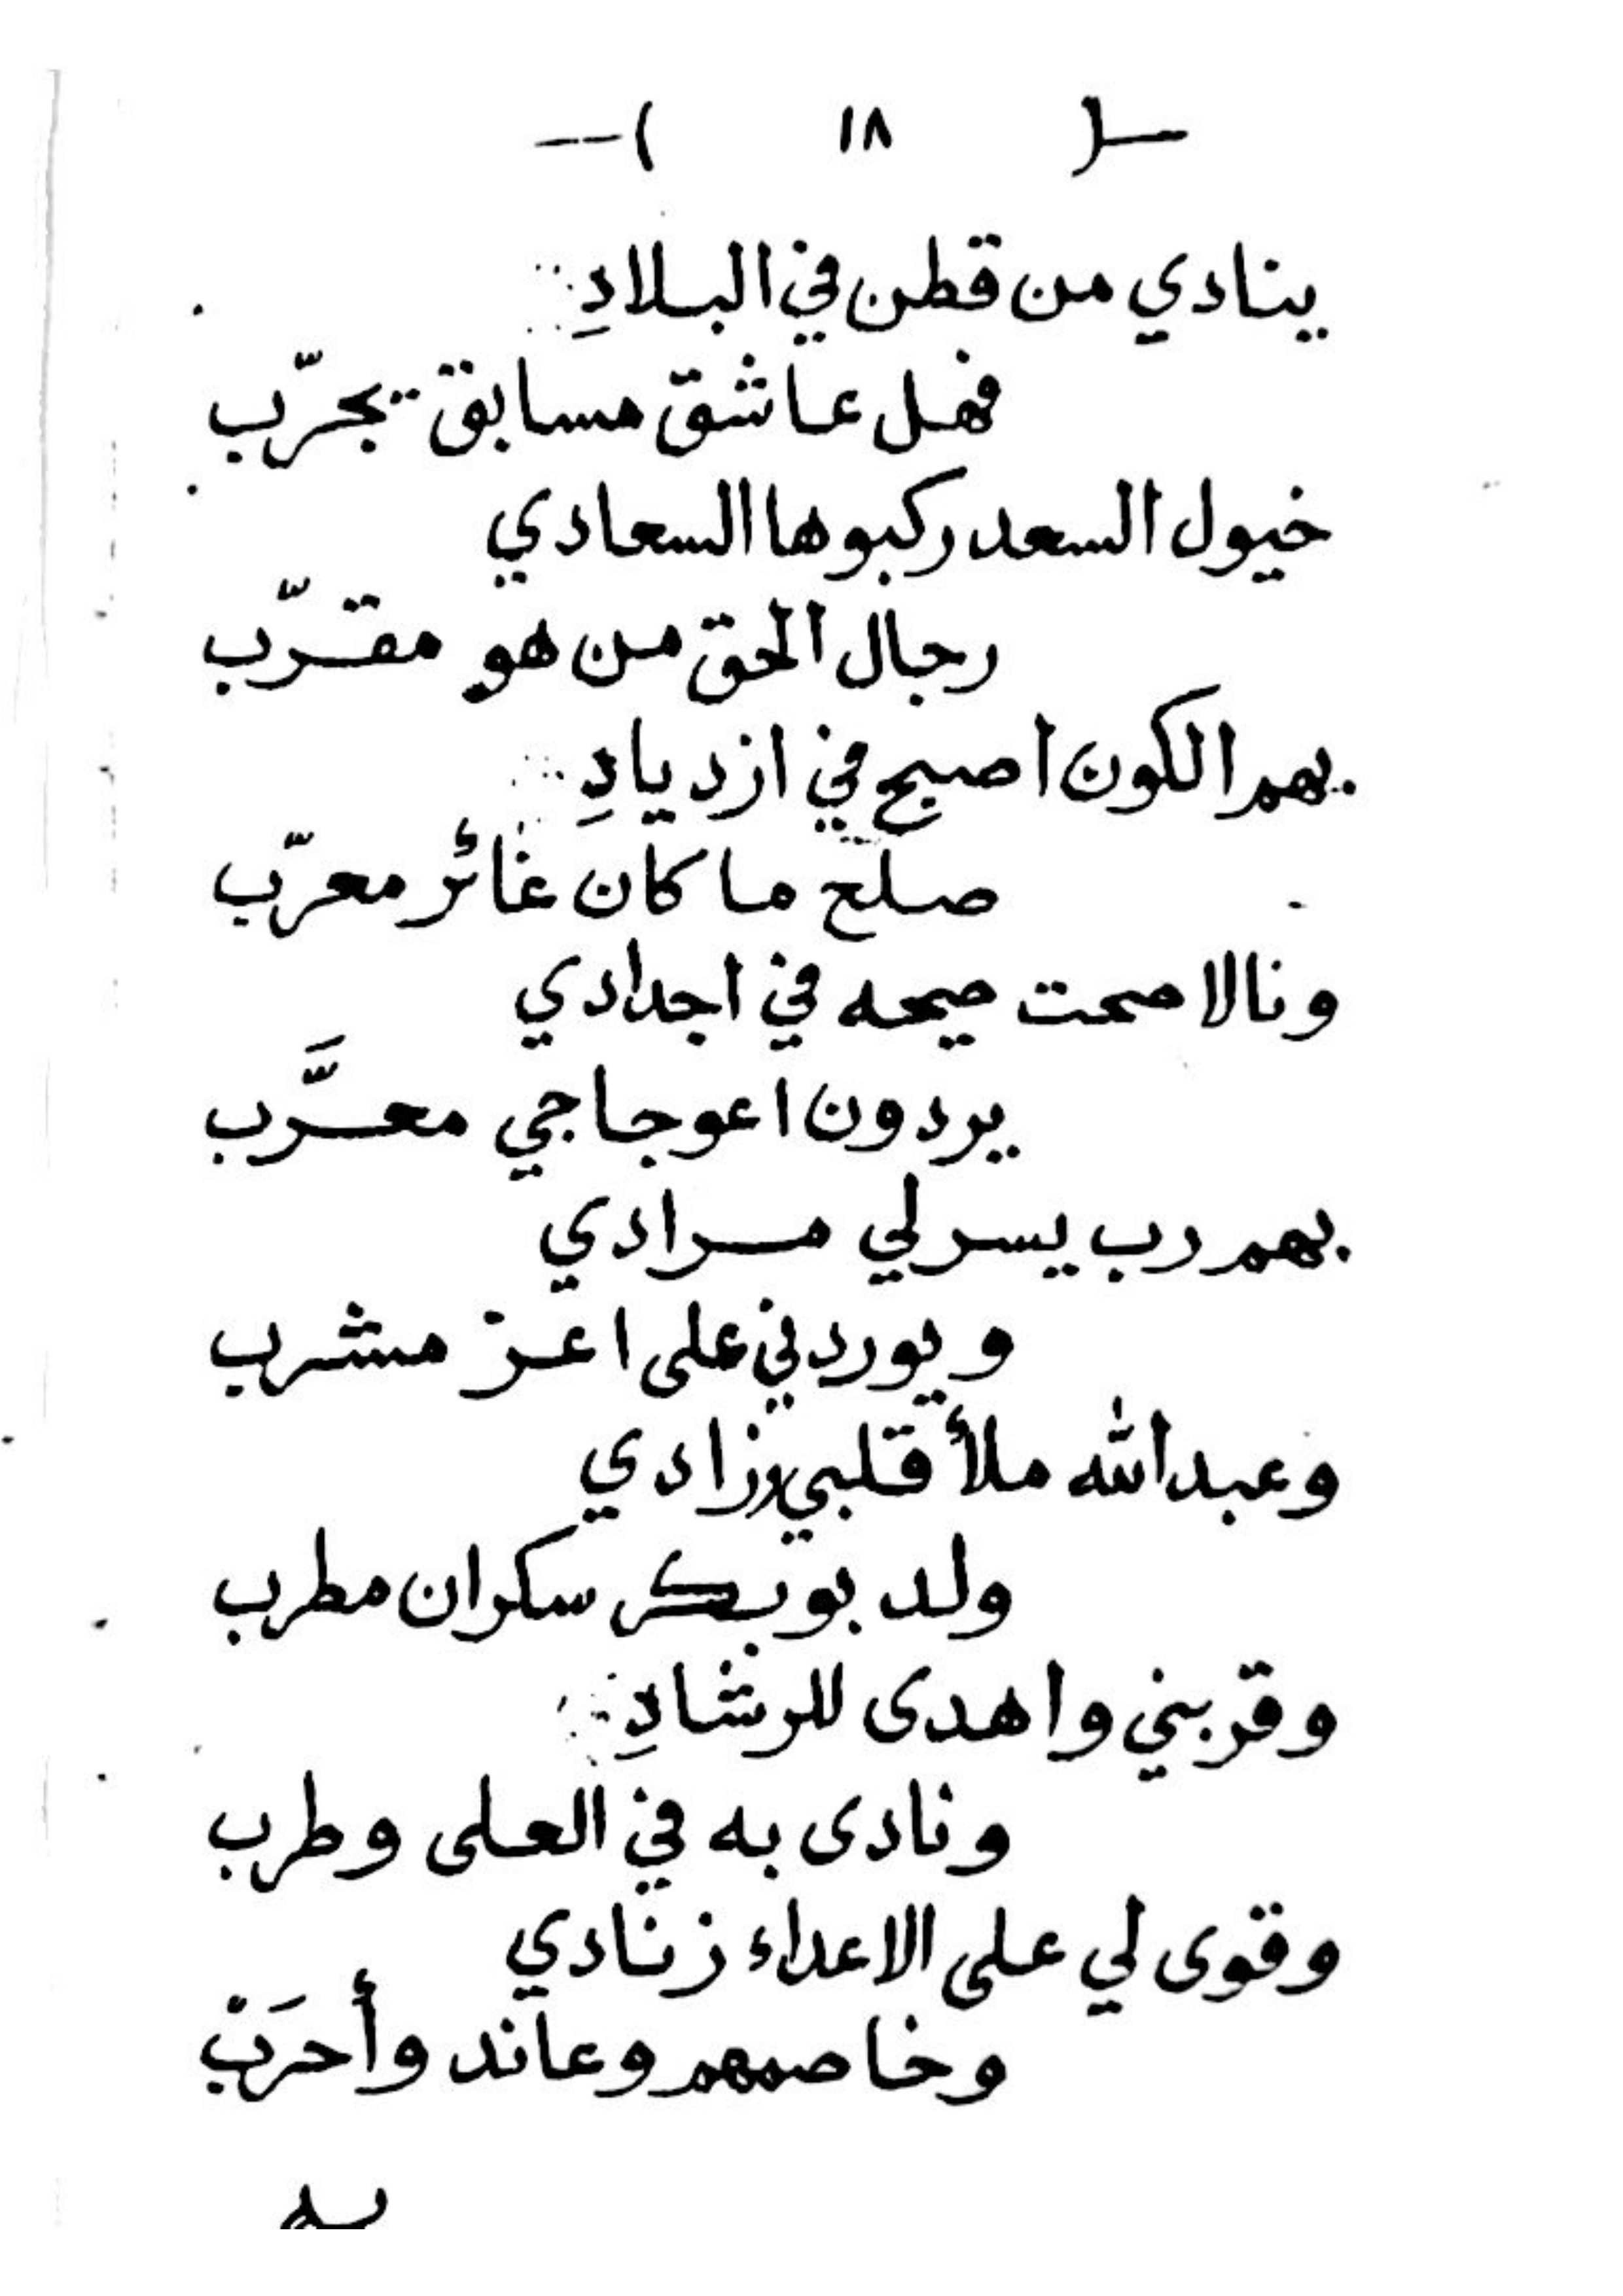 —( ١٨ )—
ينادي من قطن في البلادِ
فهل عاشق مسابق يجرّب
خيول السعد ركبوها السعادي
رجال الحق من هو مقرّب
بهم الكون اصبح في ازديادِ
صلح ما كان غائر معرّب
ونالا صحت صيحه في اجدادي
يردون اعوجاجي معرَّب
بهم رب يسر لي مرادي
ويوردني على اعز مشرب
وعبدالله ملأ قلبي زادي
ولد بوبكر سكران مطرب
وقربني واهدى للرشادِ
ونادى به في العلى وطرب
وقوى لي على الاعداء زنادي
وخاصمهم وعاند وأحرَبْ